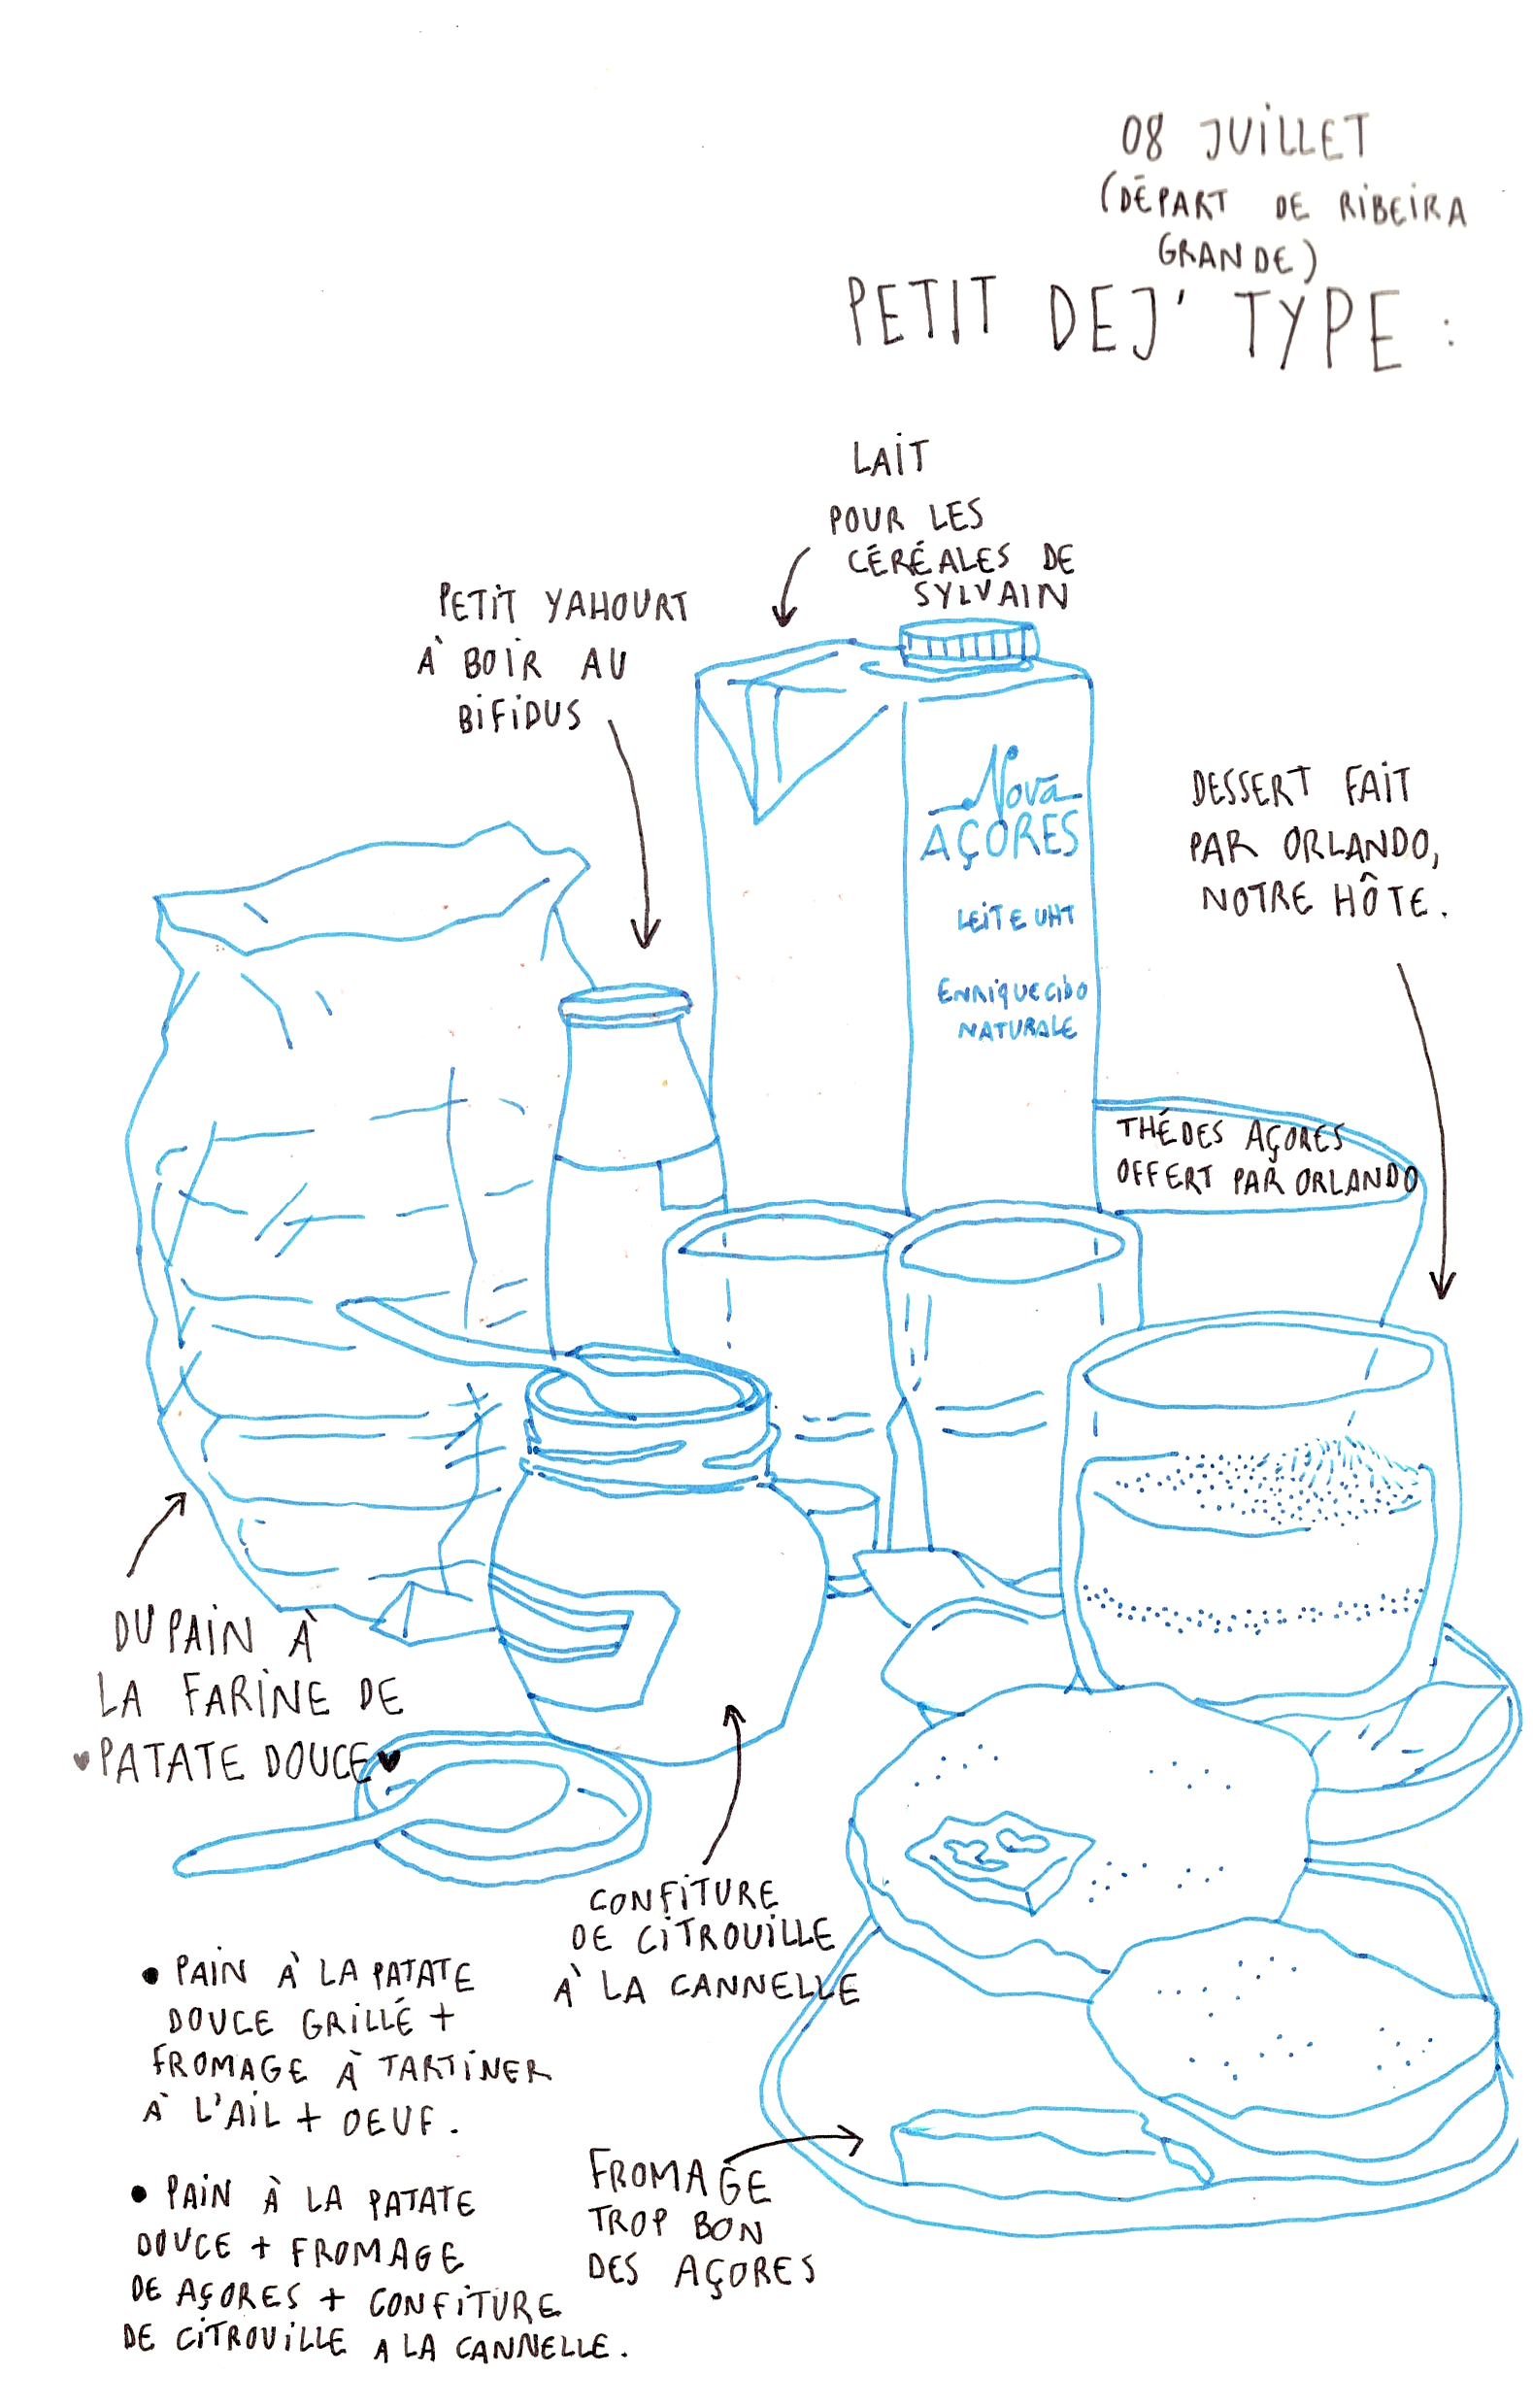 08 JUILLET
(DÉPART DE RIBEIRA
GRANDE)
PETIT DEJ' TYPE :
LAIT
POUR LES
CÉRÉALES DE
SYLVAIN
PETIT YAHOURT
À BOIR AU
BIFIDUS
Nova
AÇORES
LEITE UHT
ENRIQUECIDO
NATURALE
DESSERT FAIT
PAR ORLANDO,
NOTRE HÔTE.
THÉ DES AÇORES
OFFERT PAR ORLANDO
DU PAIN À
LA FARINE DE
♥PATATE DOUCE♥
CONFITURE
DE CITROUILLE
À LA CANNELLE
• PAIN À LA PATATE
DOUCE GRILLÉ +
FROMAGE À TARTINER
À L'AIL + OEUF.
• PAIN À LA PATATE
DOUCE + FROMAGE
DE AÇORES + CONFITURE
DE CITROUILLE A LA CANNELLE.
FROMAGE
TROP BON
DES AÇORES